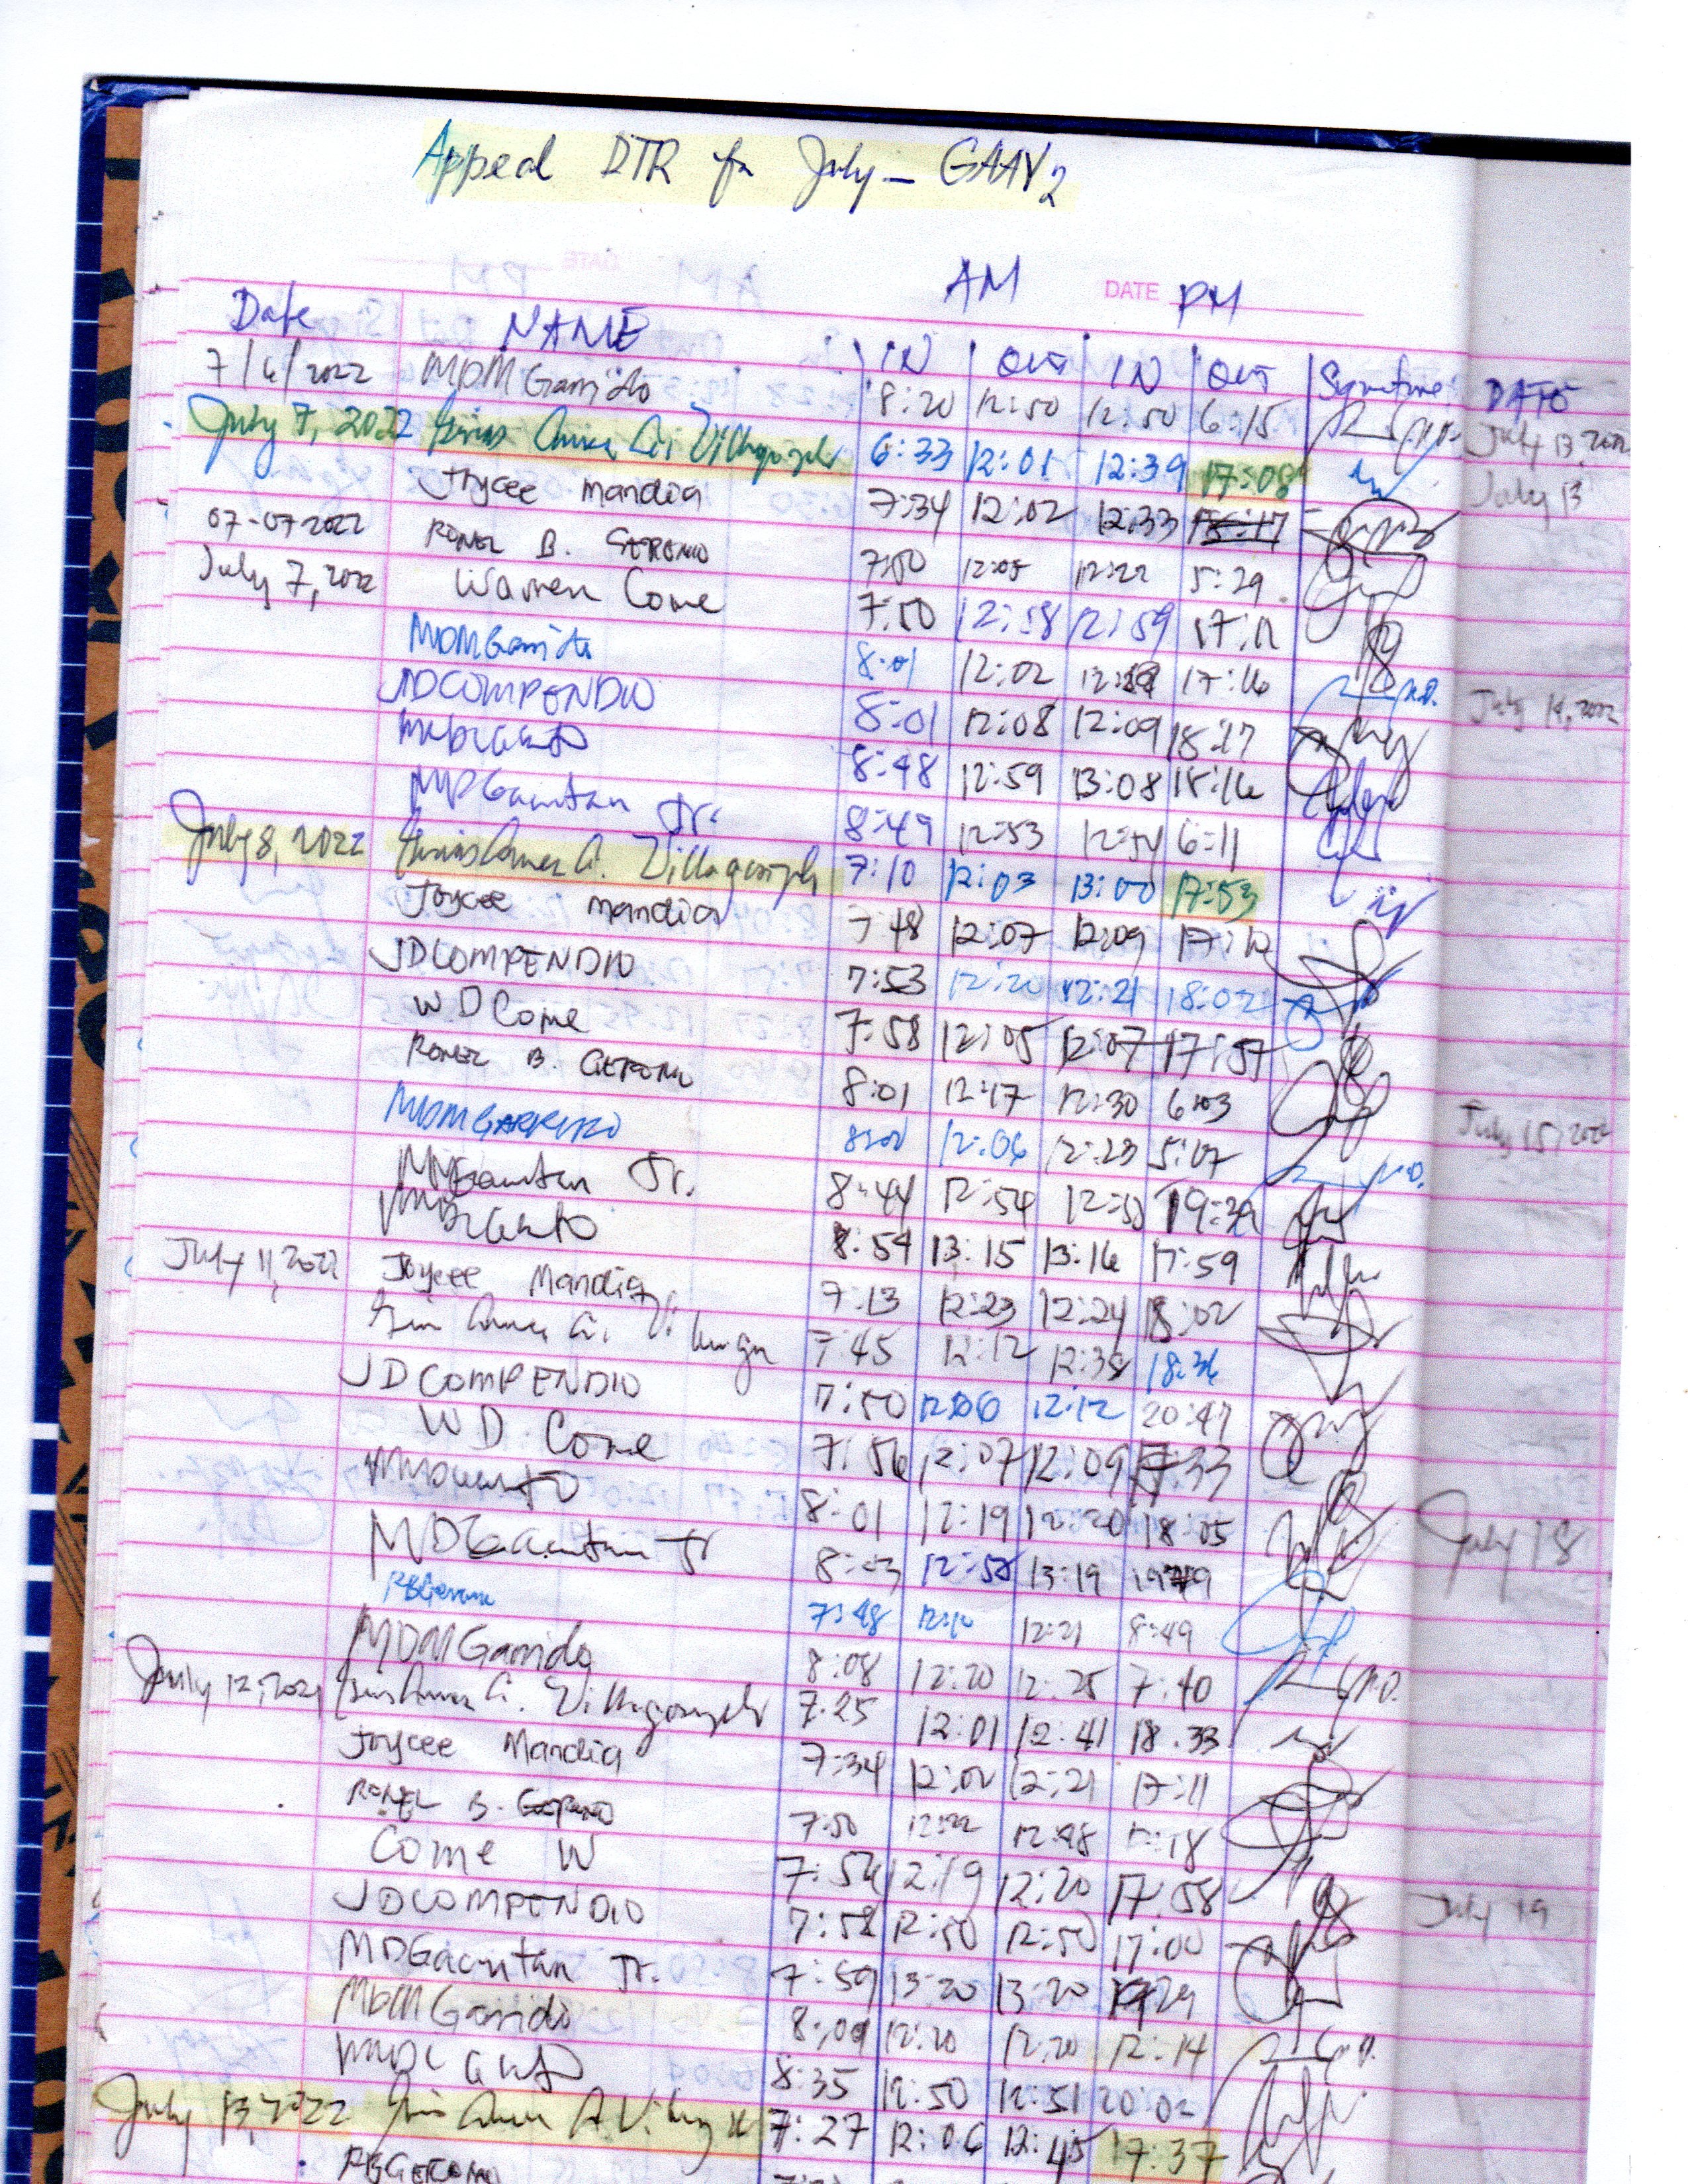 Appeal DTR for July - GAAV2
AM DATE PM
Date NAME IN OUT IN OUT Signature DATE
7/6/2022 MDMGarrido 8:20 12:50 12:50 6:15
July 13, 2022
July 7, 2022 Villagonzalo 6:33 12:01 12:39 17:08
July 13
Joycee Mandia 7:34 12:02 12:33
07-07-2022 RONEL B. GERONIO 7:50 12:05 12:22 5:29
July 7, 2022 Warren Come 7:50 12:58 12:59 17:12
MDMGarrido 8:01 12:02 17:16
JDCOMPENDIO 8:01 12:08 12:09 18:17
July 14, 2022
8:48 12:59 13:08 18:16
MDGacutan Jr. 8:49 12:53 12:54 6:11
July 8, 2022 A. Villagonzalo 7:10 12:03 13:00 17:53
Joycee Mandia 7:48 12:07 12:09 17:12
JDCOMPENDIO 7:53 12:20 12:21 18:02
WD Come 7:58 12:05 12:07 17:57
RONEL B. GERONIO 8:01 12:17 12:30 6:03
July 15, 2022
MDMGARRIDO 12:06 12:23 5:07
MDGacutan Jr. 8:44 12:54
8:54 13:15 13:16 17:59
July 11, 2022 Joycee Mandia 7:13 12:23 12:24 18:02
7:45 12:12 12:38 18:36
JDCOMPENDIO 7:50 12:06 12:12 20:47
WD Come 7:56 12:07 12:09 17:33
8:01 12:19 12:20 18:05
July 18
MDGacutan Jr 8:03 12:58 13:19
RBGeronio 7:48 12:10 12:21 8:49
MDMGarrido 8:08 12:20 12:25 7:40
July 12, 2022 A. Villagonzalo 7:25 12:01 12:41 18:33
Joycee Mandia 7:34 12:02 12:21 17:11
RONEL B. GERONIO 7:50 12:22 12:48 17:18
Come W 7:56 12:19 12:20 17:58
July 19
JDCOMPENDIO 7:58 12:50 12:50 17:00
MDGacutan Jr. 7:59 13:20 13:20
MDMGarrido 8:09 12:20 12:20 12:14
8:35 12:50 12:51 20:02
July 13, 2022 7:27 12:06 12:45 17:37
RBGERONIO